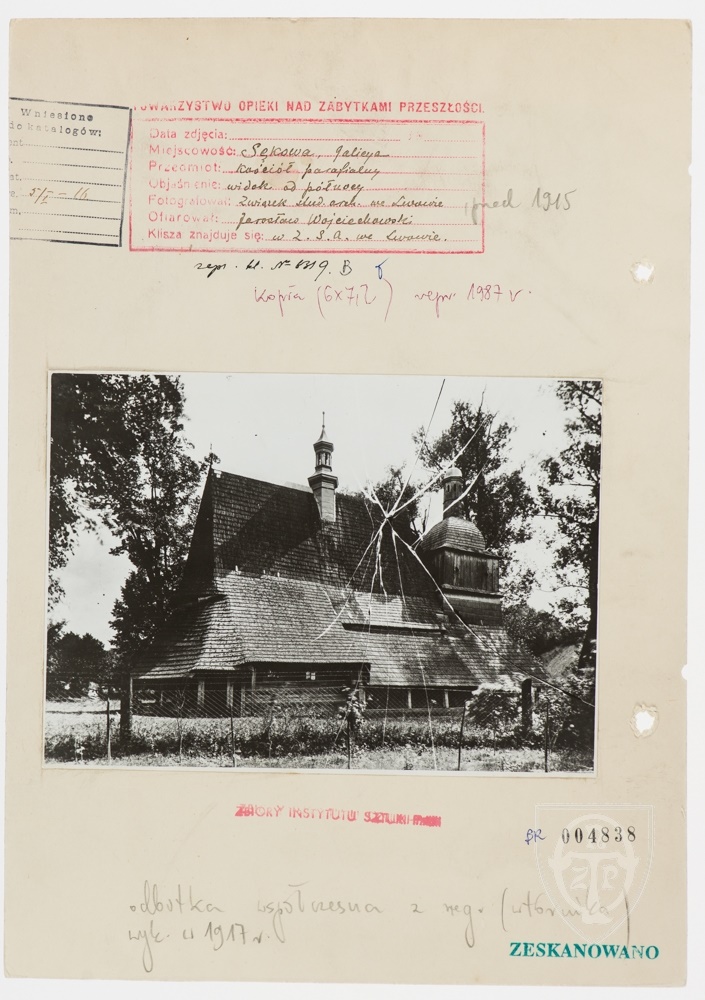 TOWARZYSTWO OPIEKI NAD ZABYTKAMI PRZESZŁOŚCI.
Wniesione
do katalogów:
5/I – 16
Data zdjęcia:
Miejscowość: Sękowa, Galicya
Przedmiot: kościół parafialny
Objaśnienie: widok od północy
Fotografował: Związek stud. arch. we Lwowie
Ofiarował: Jarosław Wojciechowski
Klisza znajduje się: w Z. S. A. we Lwowie.
przed 1915
repr. kl. № 1319. B
Kopia (6x7,2) repr 1987 r.
ZBIORY INSTYTUTU SZTUKI PAN
BR 004838
odbitka współczesna z neg. (wtórnika)
wyk. w 1917 r.
ZESKANOWANO